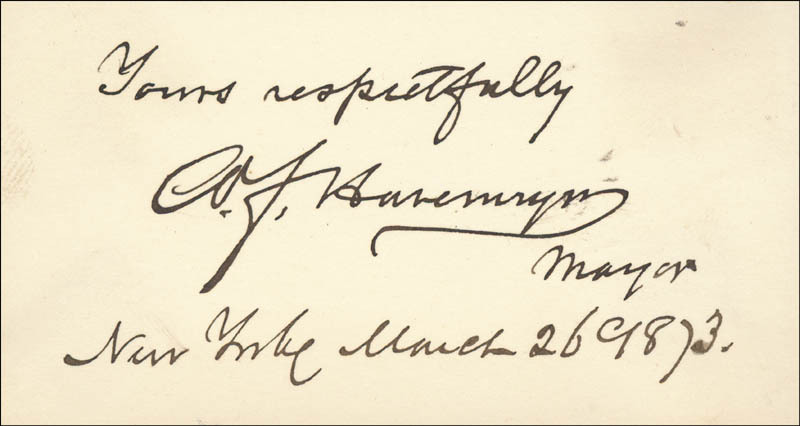 Yours respectfully
W. F. Havemeyer
Mayor
New York March 26 1873.